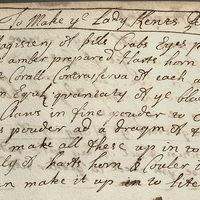 To Make ye Lady Kents
Magistery of Crabs Eyes
amber prepared Harts horn
Corall Contrasirva of each a
Equal quantaty of ye bla
Claws in fine powder to
powder ad a dragm of
make all these up in to
ly of harts horn & Couler it
n make it up in to litt